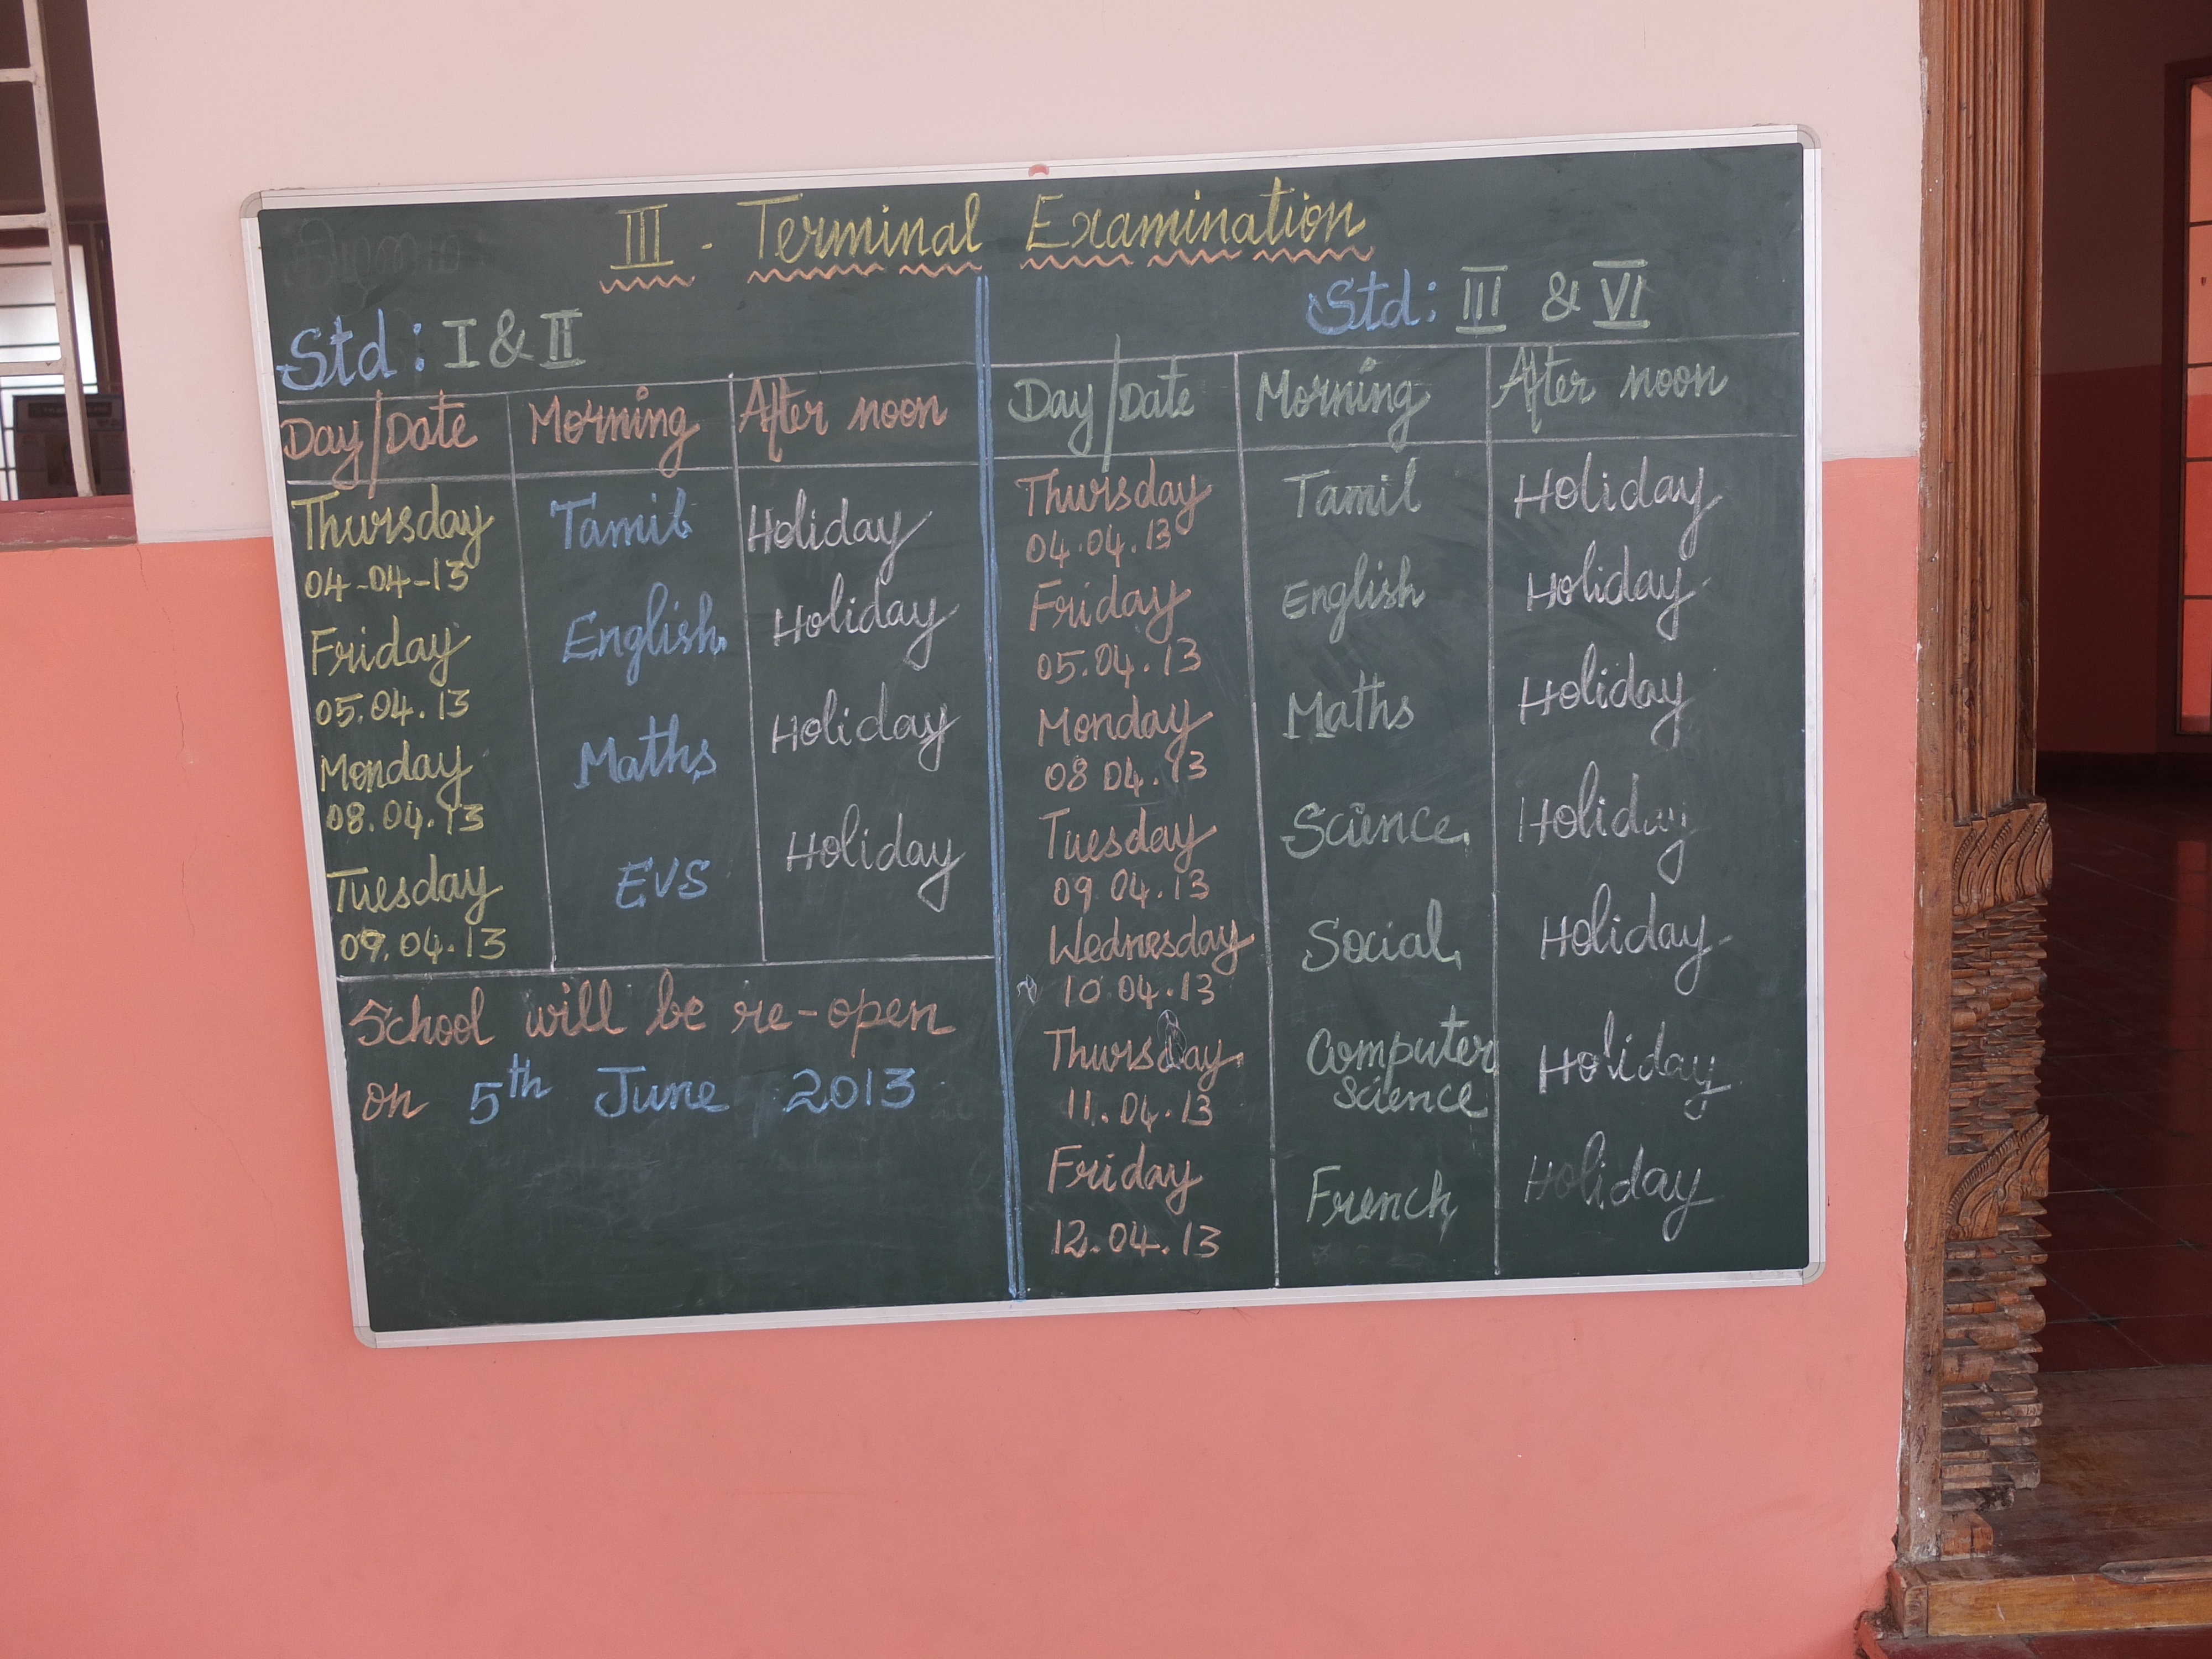 III - Terminal Examination
Std: I & II
Day/Date Morning After noon
Thursday Tamil Holiday
04-04-13
Friday English Holiday
05.04.13
Monday Maths Holiday
08.04.13
Tuesday EVS Holiday
09.04.13
School will be re-open
on 5th June 2013
Std: III & VI
Day/Date Morning After noon
Thursday Tamil Holiday
04.04.13
Friday English Holiday
05.04.13
Monday Maths Holiday
08 04.13
Tuesday Science Holiday
09.04.13
Wednesday Social Holiday
10.04.13
Thursday Computer Holiday
11.04.13 Science
Friday French Holiday
12.04.13